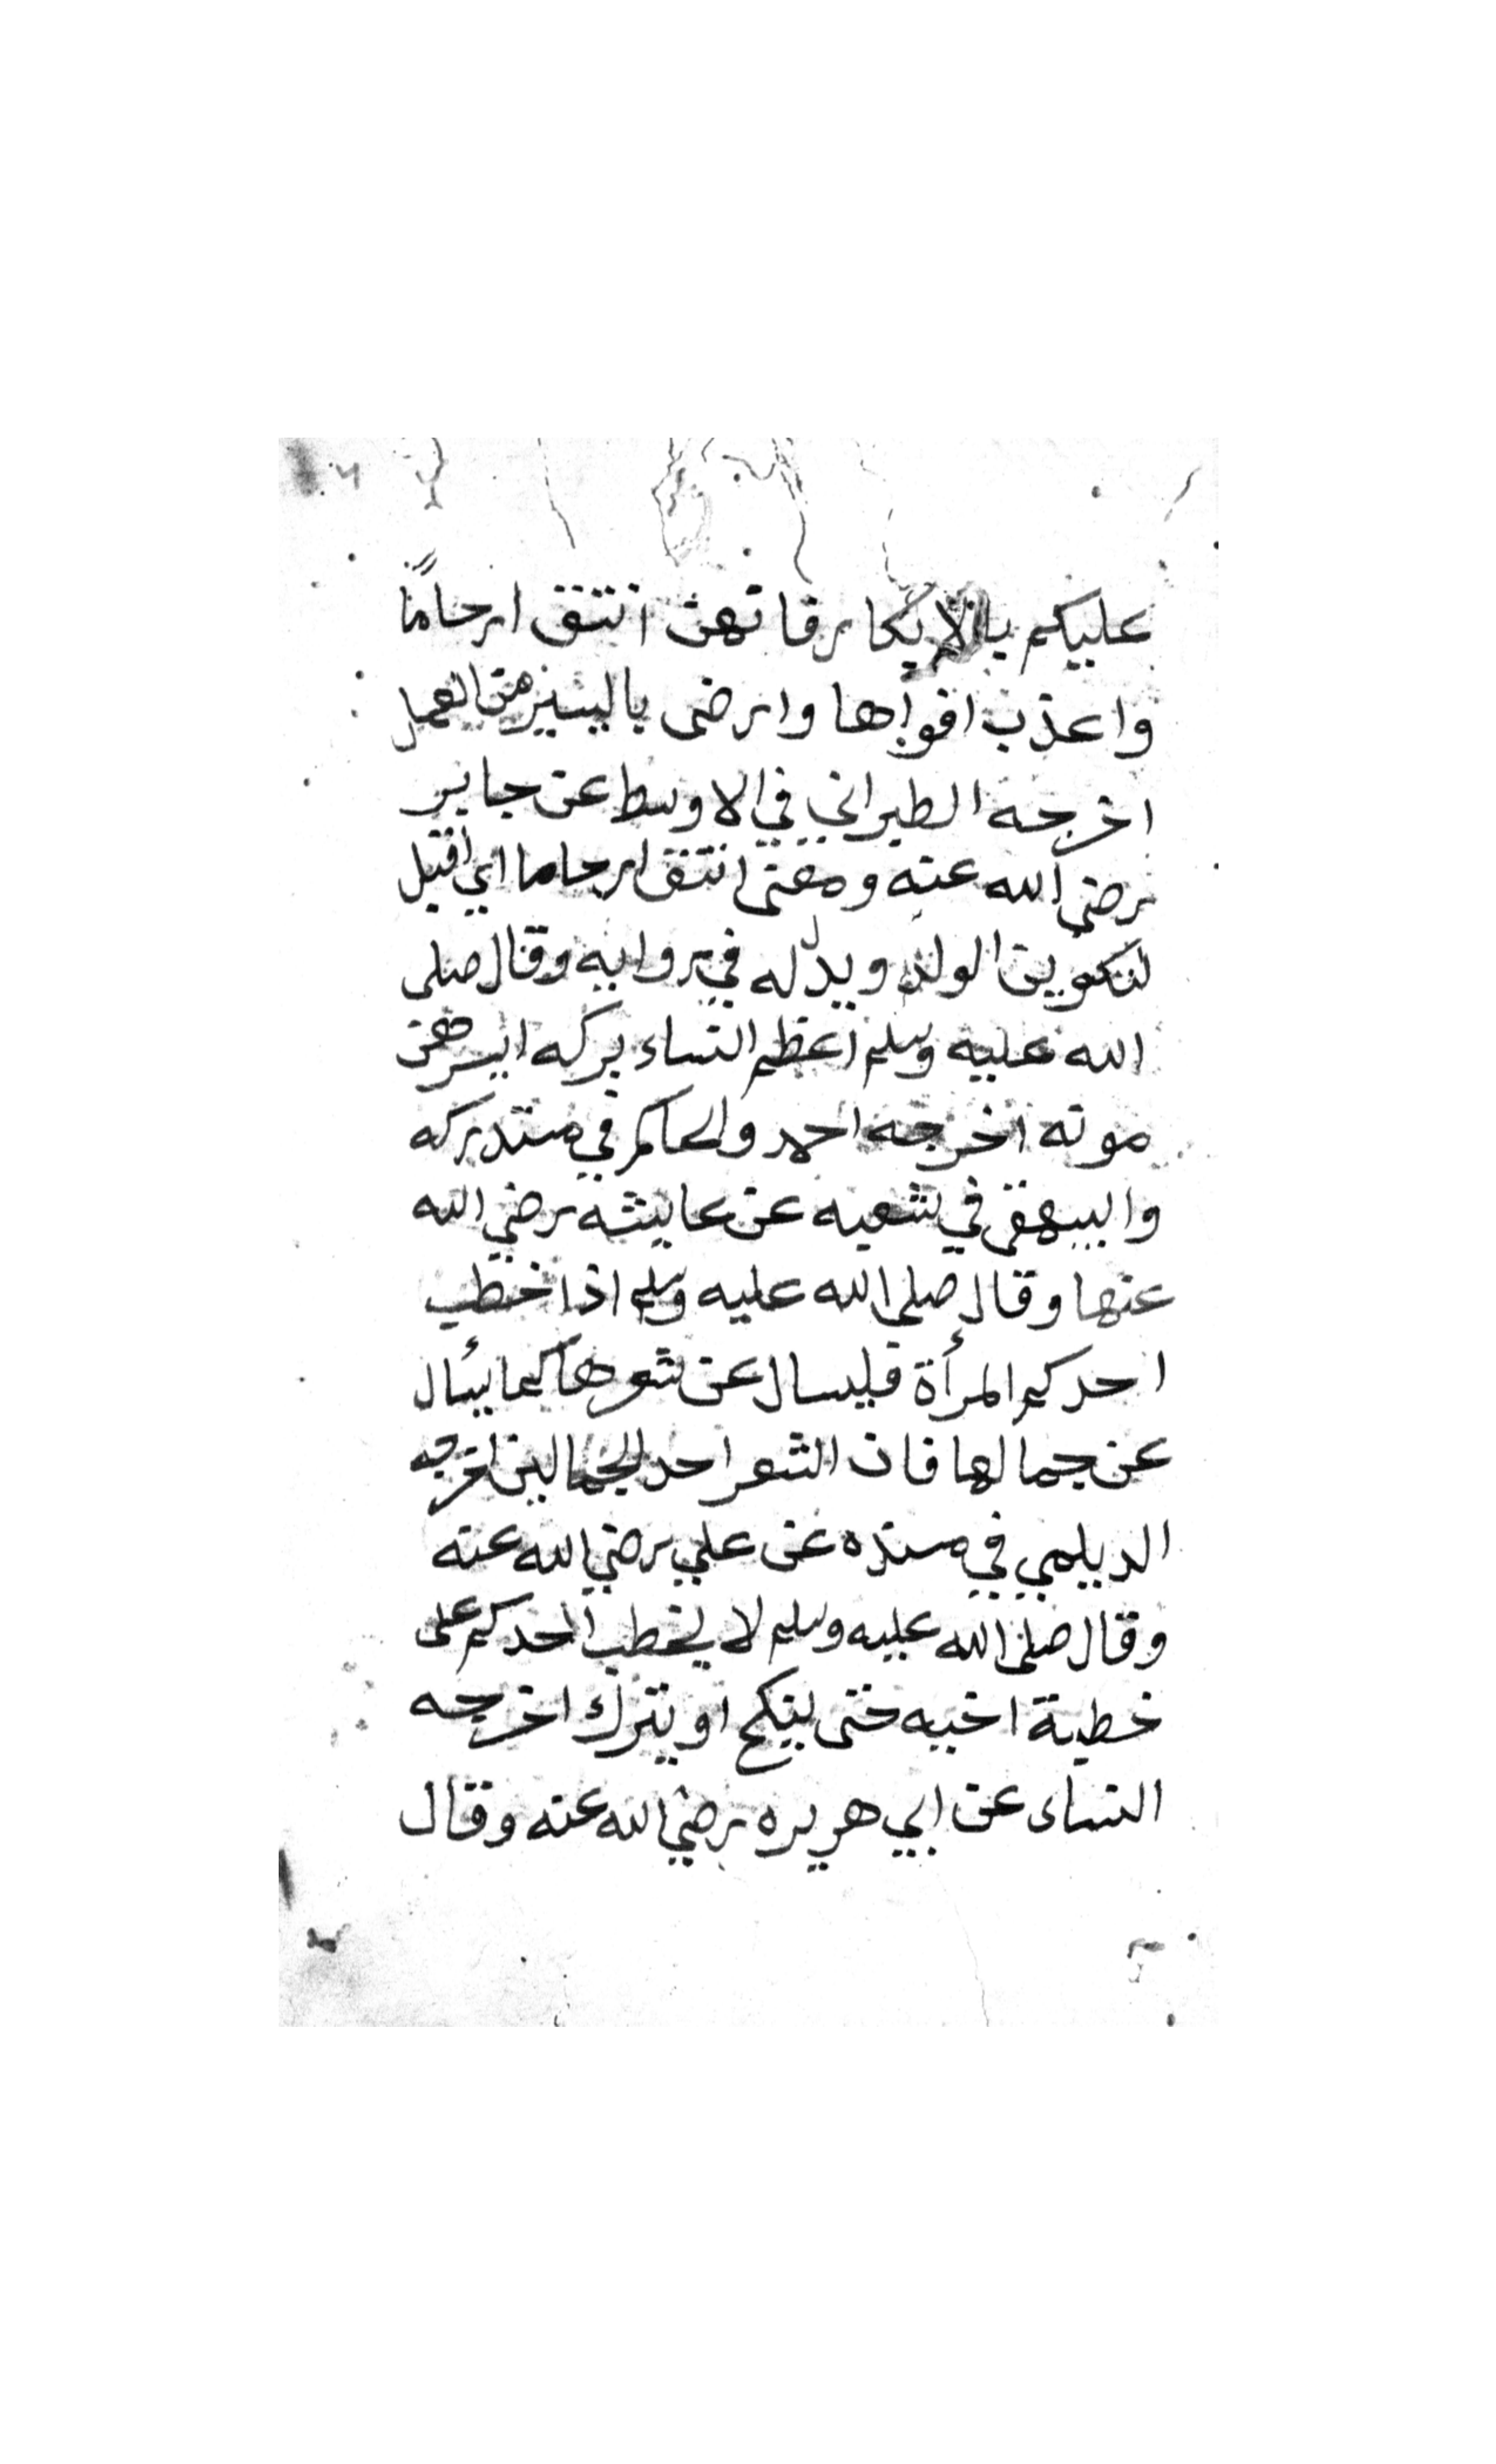 عليكم بالابكار فانهن انتق ارحامًا
واعذب افواها وارضى باليسير من العمل
اخرجه الطبراني في الاوسط عن جابر
رضي الله عنه ومعنى انتق ارحاما اي اقبل
لتكوين الولد ويدل له في روايه وقال صلى
الله عليه وسلم اعظم النساء بركه ايسرهن
مونه اخرجه احمد والحاكم في مستدركه
والبيهقي في شعبه عن عايشه رضي الله
عنها وقال صلى الله عليه وسلم اذا خطب
احدكم المرأة فليسال عن شعرها كما يسأل
عن جمالها فان الشعر احد الجمالين اخرجه
الديلمي في مسنده عن علي رضي الله عنه
وقال صلى الله عليه وسلم لا يخطب احدكم على
خطبة اخيه حتى ينكح او يترك اخرجه
النساى عن ابي هريره رضي الله عنه وقال